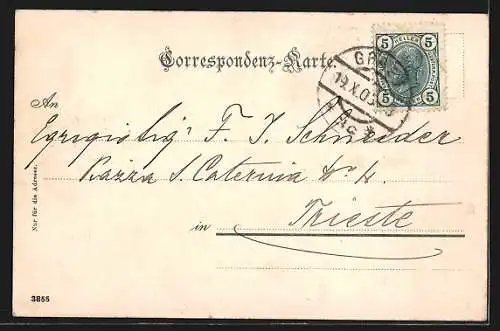 Correspondenz-Karte.
5 HELLER 5
5 5
GRAZ
19.X.0
An
F. I. Schneider
Piazza S. Caterina No 4.
in Trieste
Nur für die Adresse.
3855